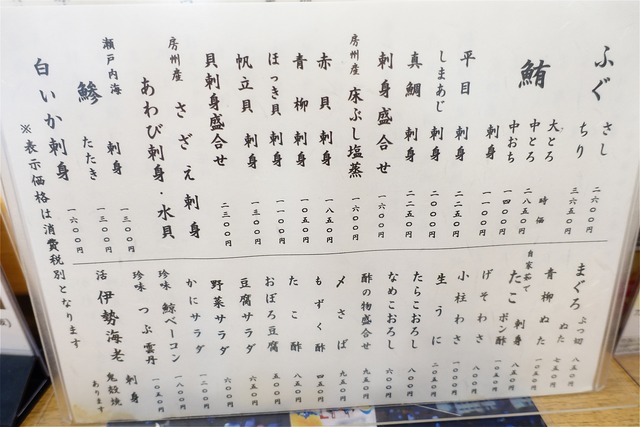 ふぐ さし 二六〇〇円
ちり 三六五〇円
鮪 大とろ 時価
中とろ 二八五〇円
中おち 一四〇〇円
刺身 一一〇〇円
平目 刺身 二二五〇円
しまあじ 刺身 二〇〇〇円
真鯛 刺身 二二五〇円
刺身盛合せ 一六〇〇円
房州産 床ぶし塩蒸 一六〇〇円
赤貝 刺身 一八五〇円
青柳 刺身 一〇五〇円
ほっき貝 刺身 一一〇〇円
帆立貝 刺身 一三〇〇円
貝刺身盛合せ 二三〇〇円
房州産 さざえ刺身
あわび刺身・水貝
瀬戸内海 鯵 刺身 一三〇〇円
たたき 一三〇〇円
白いか刺身 一六〇〇円
※表示価格は消費税別となります
まぐろ ぶつ切 一〇五〇円
ぬた
青柳ぬた 一〇五〇円
自家茹で たこ 刺身 八五〇円
ポン酢
げそわさ 八〇〇円
小柱わさ 一〇〇〇円
生うに 二〇五〇円
たらこおろし 八〇〇円
なめこおろし 六〇〇円
酢の物盛合せ 九五〇円
〆さば 九五〇円
もずく酢 四五〇円
たこ酢 八五〇円
おぼろ豆腐 五〇〇円
豆腐サラダ 六五〇円
野菜サラダ 六〇〇円
かにサラダ 一二〇〇円
珍味 鯨ベーコン 一八〇〇円
珍味 つぶ雲丹 一〇五〇円
活 伊勢海老 刺身
鬼殻焼
あります